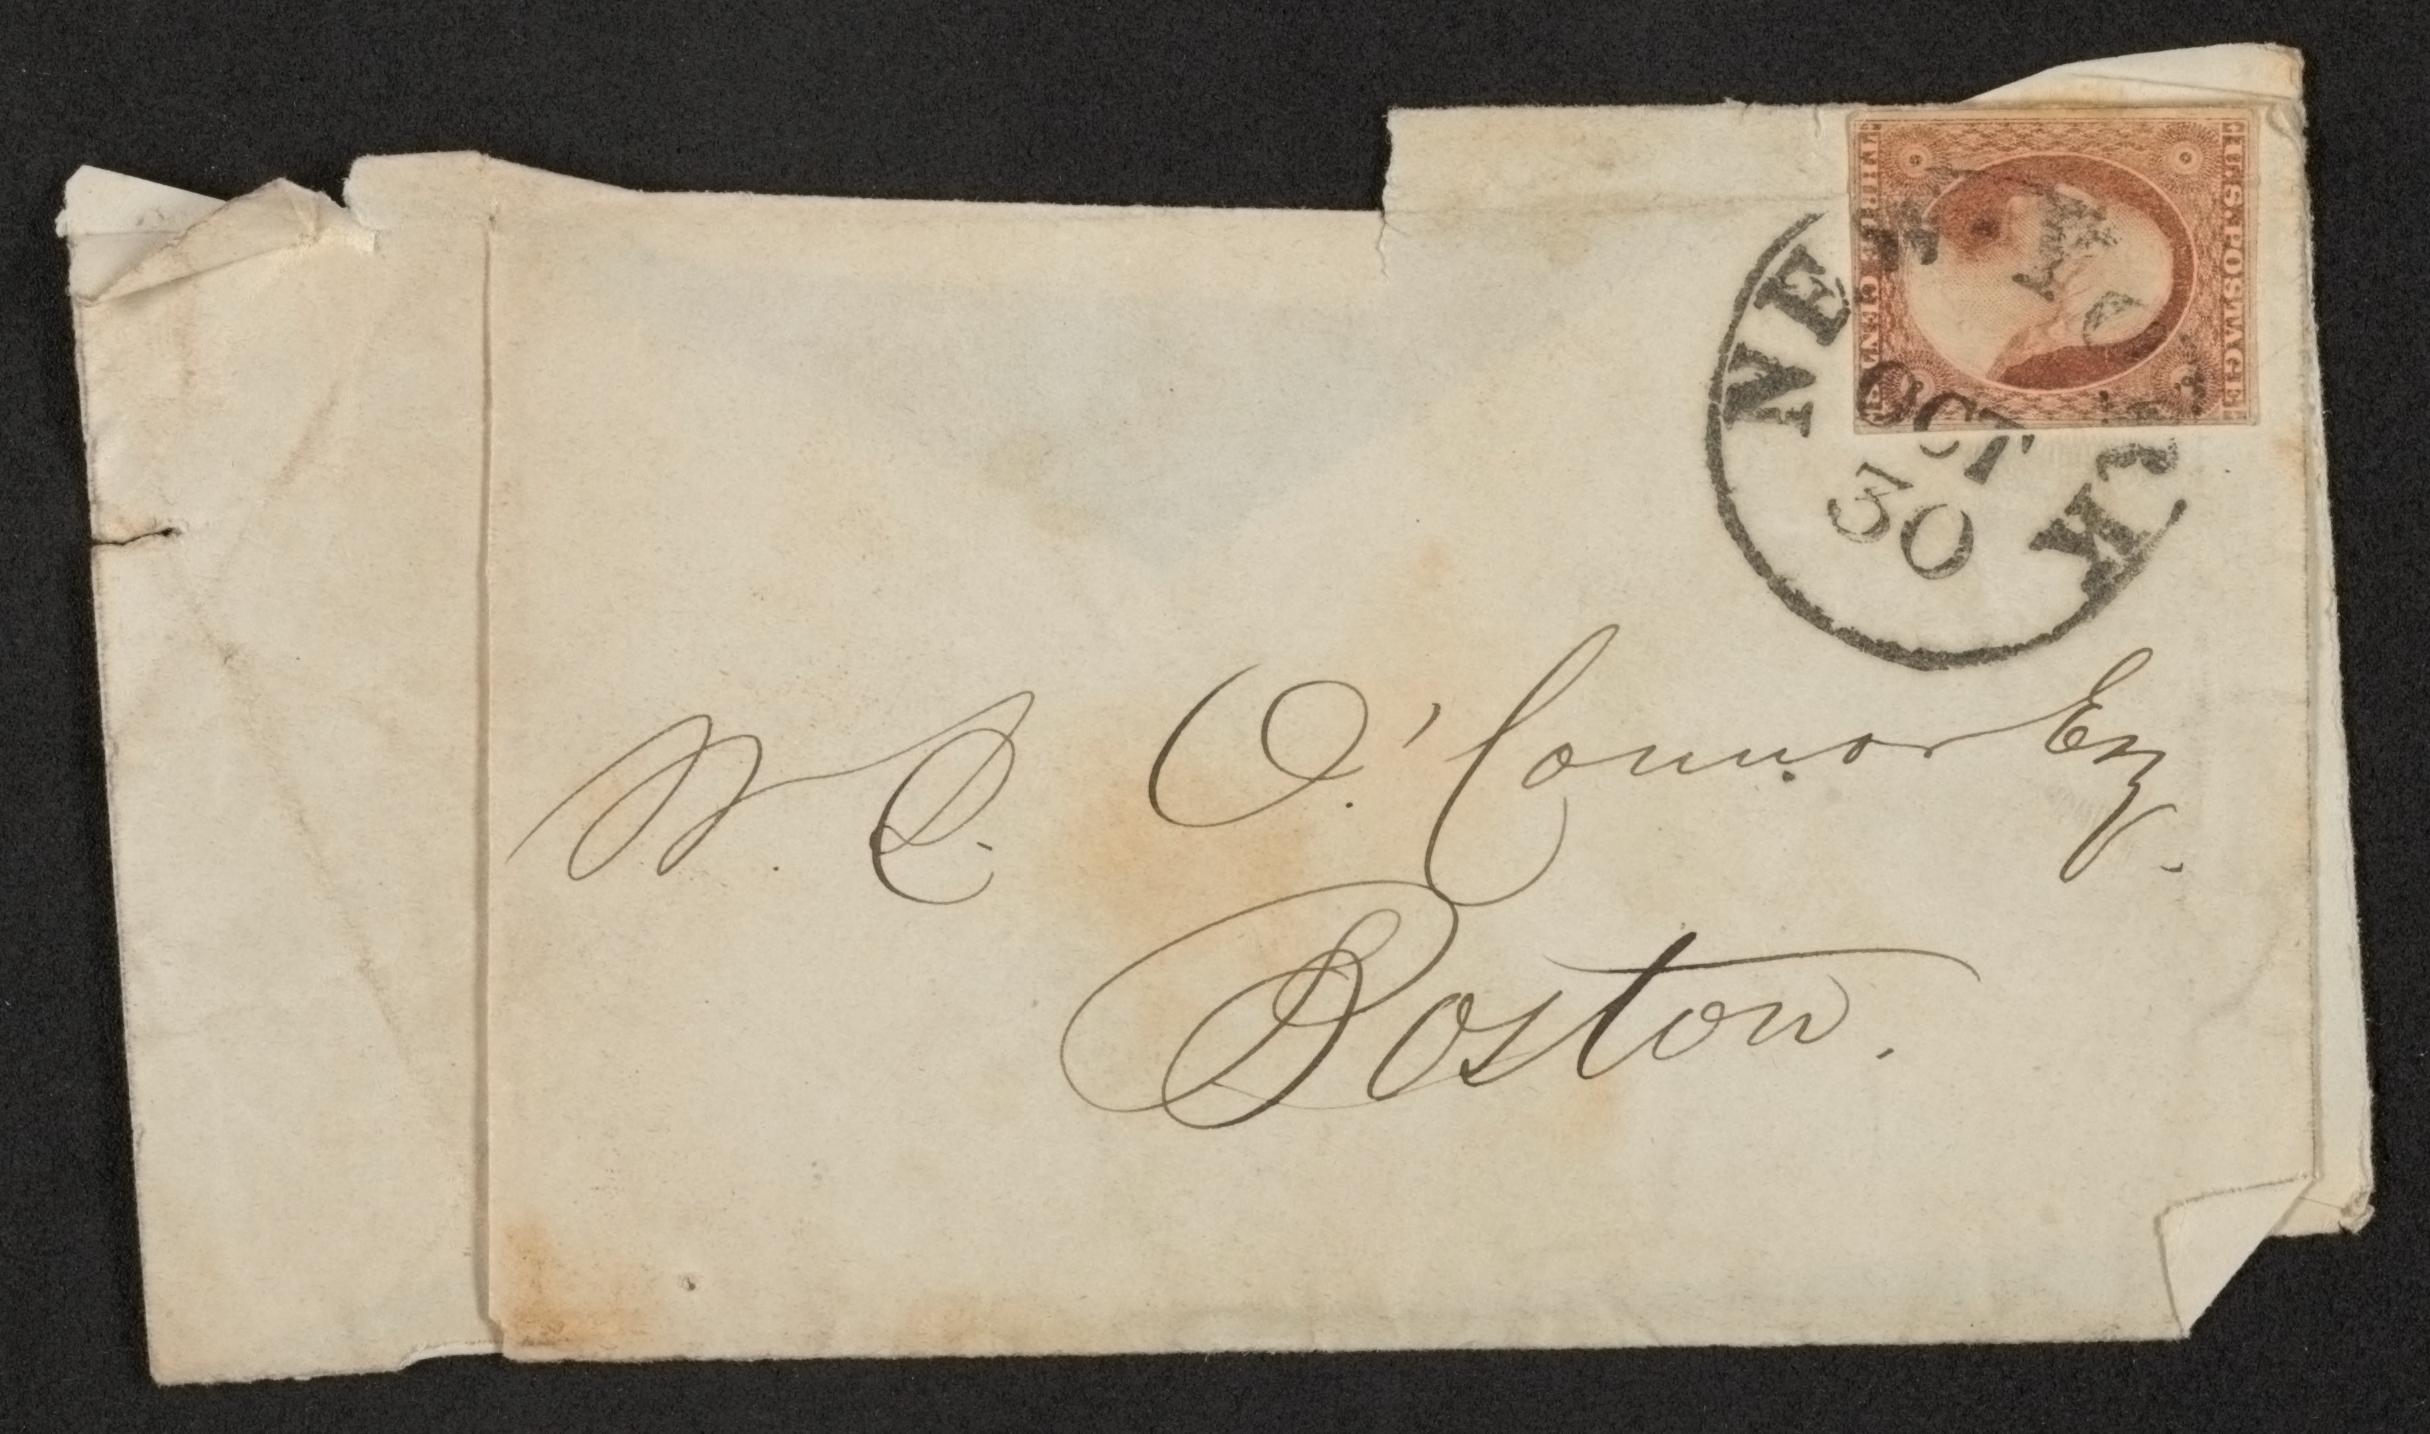 U.S. POSTAGE
THREE CENTS
NEW YORK
OCT
30
W. D. O'Connor Esq.
Boston.